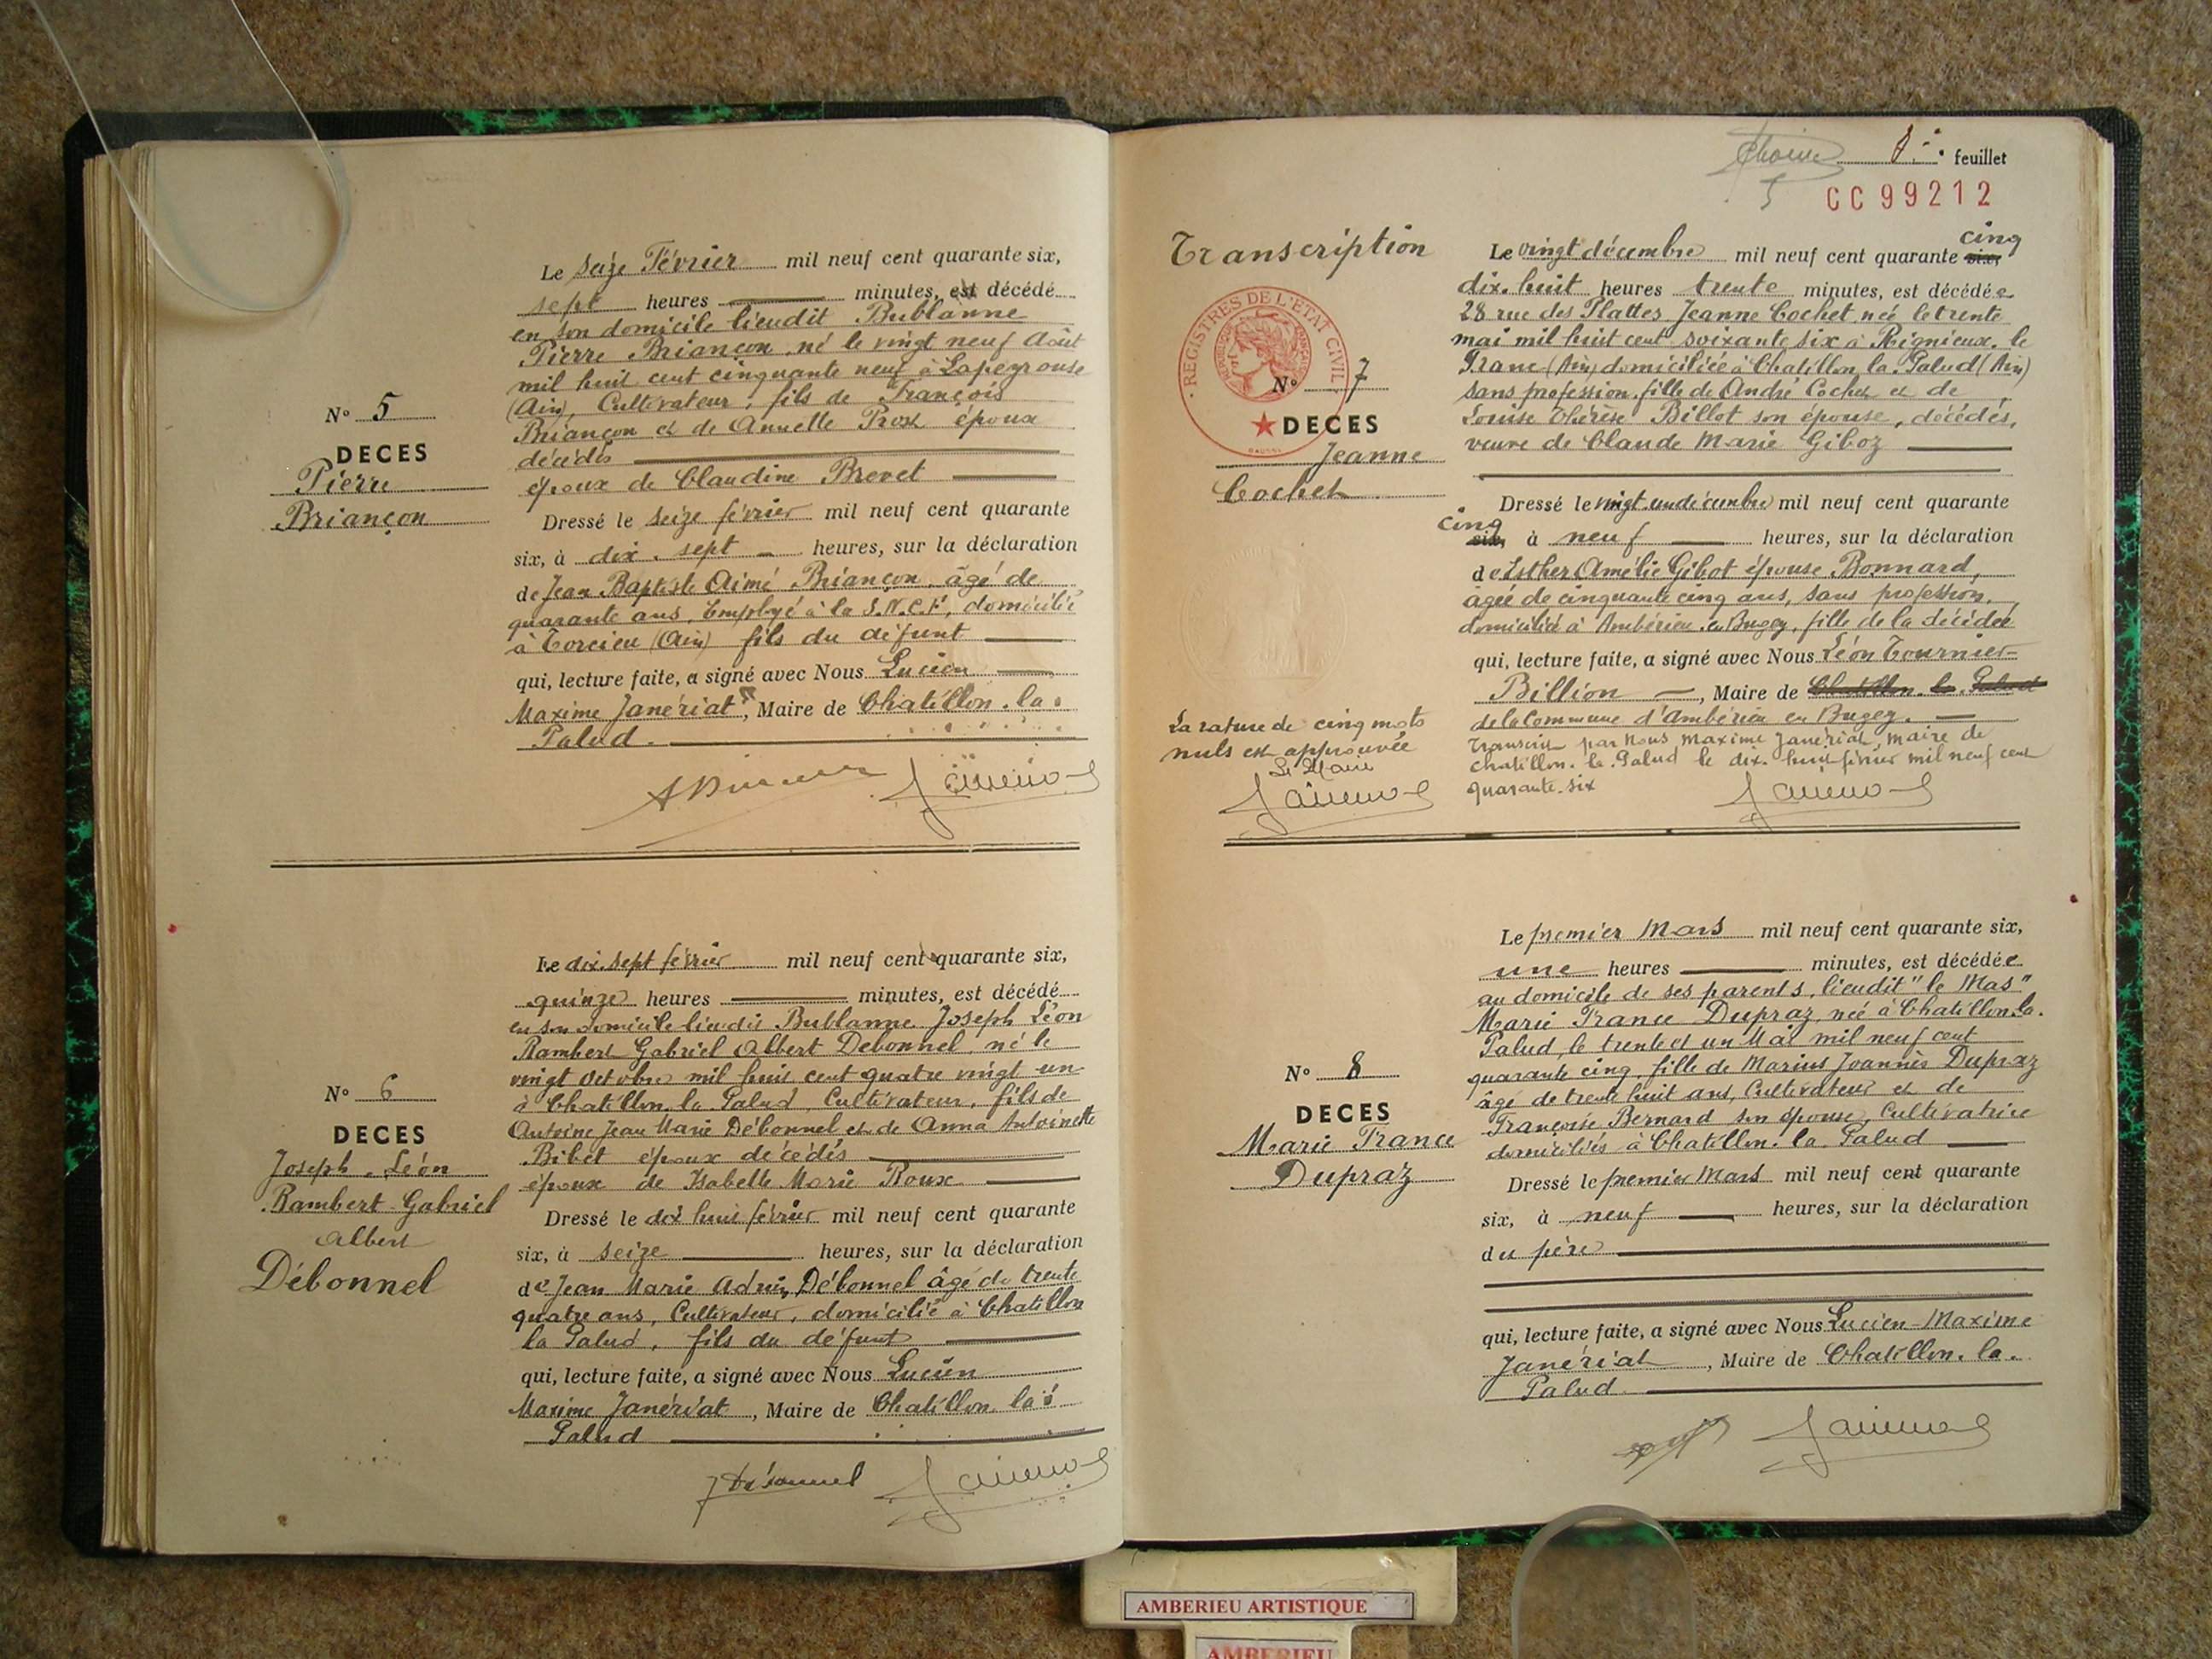 Le seize Février mil neuf cent quarante six,
sept heures minutes, est décédé
en son domicile lieudit Bublanne
Pierre Briançon né le vingt neuf Août
mil huit cent cinquante neuf à Lapeyrouse
(Ain), Cultivateur, fils de François
Briançon et de Annette Prost époux
décédés
époux de Claudine Brevet
N° 5
DECES
Pierre
Briançon
Dressé le seize février mil neuf cent quarante
six, à dix-sept heures, sur la déclaration
de Jean Baptiste Aimé Briançon, âgé de
quarante ans, Employé à la S.N.C.F, domicilié
à Torcieu (Ain) fils du défunt
qui, lecture faite, a signé avec Nous Lucien
Maxime Janériat, Maire de Chatillon-la-
Palud.
Le dix-sept février mil neuf cent quarante six,
quinze heures minutes, est décédé
en son domicile lieudit Bublanne Joseph Léon
Rambert Gabriel Albert Débonnel, né le
vingt octobre mil huit cent quatre vingt un
à Chatillon la Palud, Cultivateur, fils de
Antoine Jean Marie Débonnel et de Anna Antoinette
Bibet époux décédés
époux de Isabelle Marie Roux
N° 6
DECES
Joseph-Léon
Rambert-Gabriel
Albert
Débonnel
Dressé le dix huit février mil neuf cent quarante
six, à seize heures, sur la déclaration
de Jean Marie Adrien Débonnel âgé de trente
quatre ans, Cultivateur, domicilié à Chatillon
la Palud, fils du défunt
qui, lecture faite, a signé avec Nous Lucien
Maxime Janériat, Maire de Chatillon-la-
Palud
JDébonnel
8e feuillet
5
CC 99212
Transcription
REGISTRES DE L'ETAT CIVIL
N° 7
DECES
Jeanne
Cochet
cinq
Le vingt décembre mil neuf cent quarante six,
dix-huit heures trente minutes, est décédée
28 rue des Plattes Jeanne Cochet née le trente
mai mil huit cent soixante six à Rignieux-le
Franc (Ain) domiciliée à Chatillon la Palud (Ain)
sans profession, fille de André Cochet et de
Louise Thérèse Billot son épouse, décédés,
veuve de Claude Marie Giboz
Dressé le vingt-un décembre mil neuf cent quarante
cinq
six, à neuf heures, sur la déclaration
de Esther Amélie Gibot épouse Bonnard,
âgée de cinquante cinq ans, sans profession,
domiciliée à Ambérieu-en-Bugey, fille de la décédée
qui, lecture faite, a signé avec Nous Léon Tournier-
Billion, Maire de Chatillon-la-Palud
de la Commune d'Ambérieu en Bugey.
Transcrit par Nous Maxime Janériat, Maire de
Chatillon-la-Palud le dix-huit février mil neuf cent
quarante-six
La rature de cinq mots
nuls est approuvée
Le Maire
Le premier Mars mil neuf cent quarante six,
une heures minutes, est décédée
au domicile de ses parents, lieudit "le Mas"
Marie France Dupraz, née à Chatillon-la-
Palud, le trente et un Mai mil neuf cent
quarante cinq, fille de Marius Joannès Dupraz
âgé de trente huit ans, Cultivateur et de
Françoise Bernard son épouse, Cultivatrice
domiciliés à Chatillon-la-Palud
N° 8
DECES
Marie France
Dupraz
Dressé le premier Mars mil neuf cent quarante
six, à neuf heures, sur la déclaration
du père
qui, lecture faite, a signé avec Nous Lucien-Maxime
Janériat, Maire de Chatillon-la-
Palud
AMBERIEU ARTISTIQUE
AMBERIEU